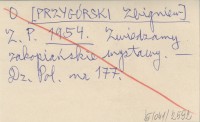 O [PRZYGÓRSKI Zbigniew]
Z. P. 1954. Zwiedzamy
zakopiańskie wystawy. —
Dz. Pol. nr 177.